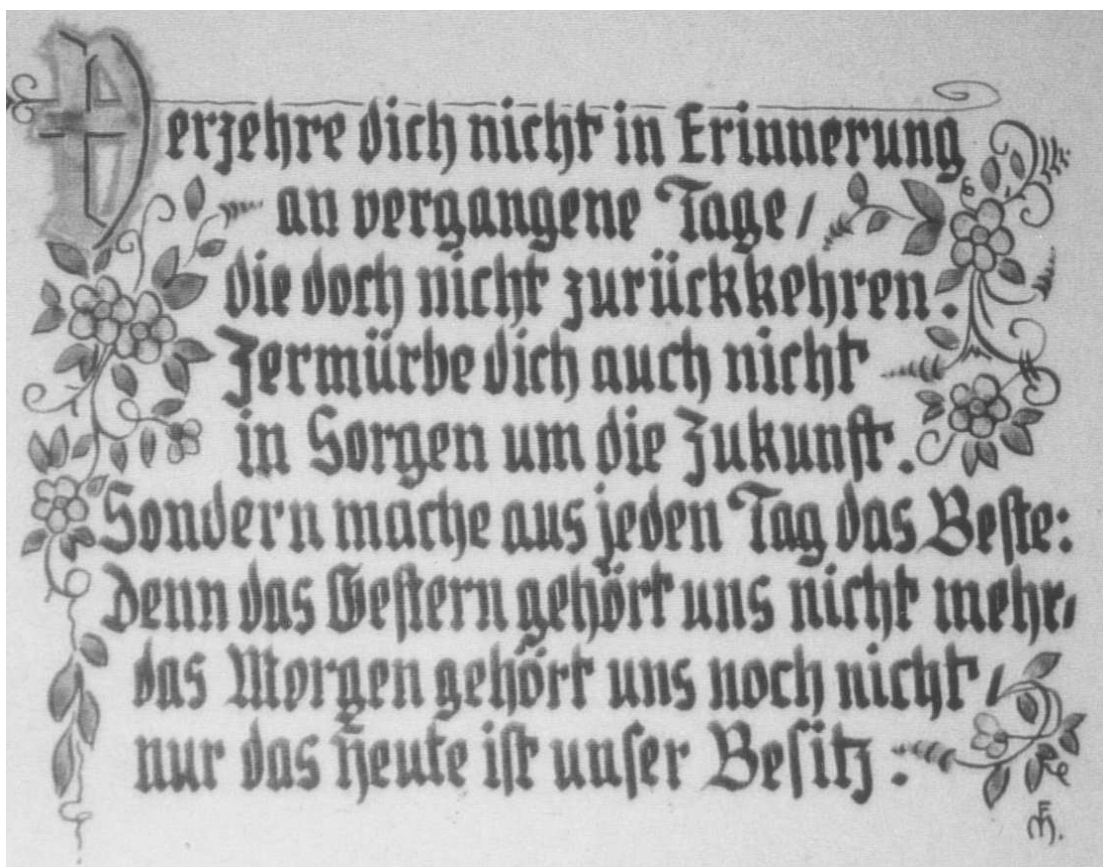 Verzehre dich nicht in Erinnerung
an vergangene Tage/
die doch nicht zurückkehren.
Zermürbe dich auch nicht
in Sorgen um die Zukunft.
Sondern mache aus jeden Tag das Beste:
Denn das Gestern gehört uns nicht mehr/
das Morgen gehört uns noch nicht/
nur das Heute ist unser Besitz.